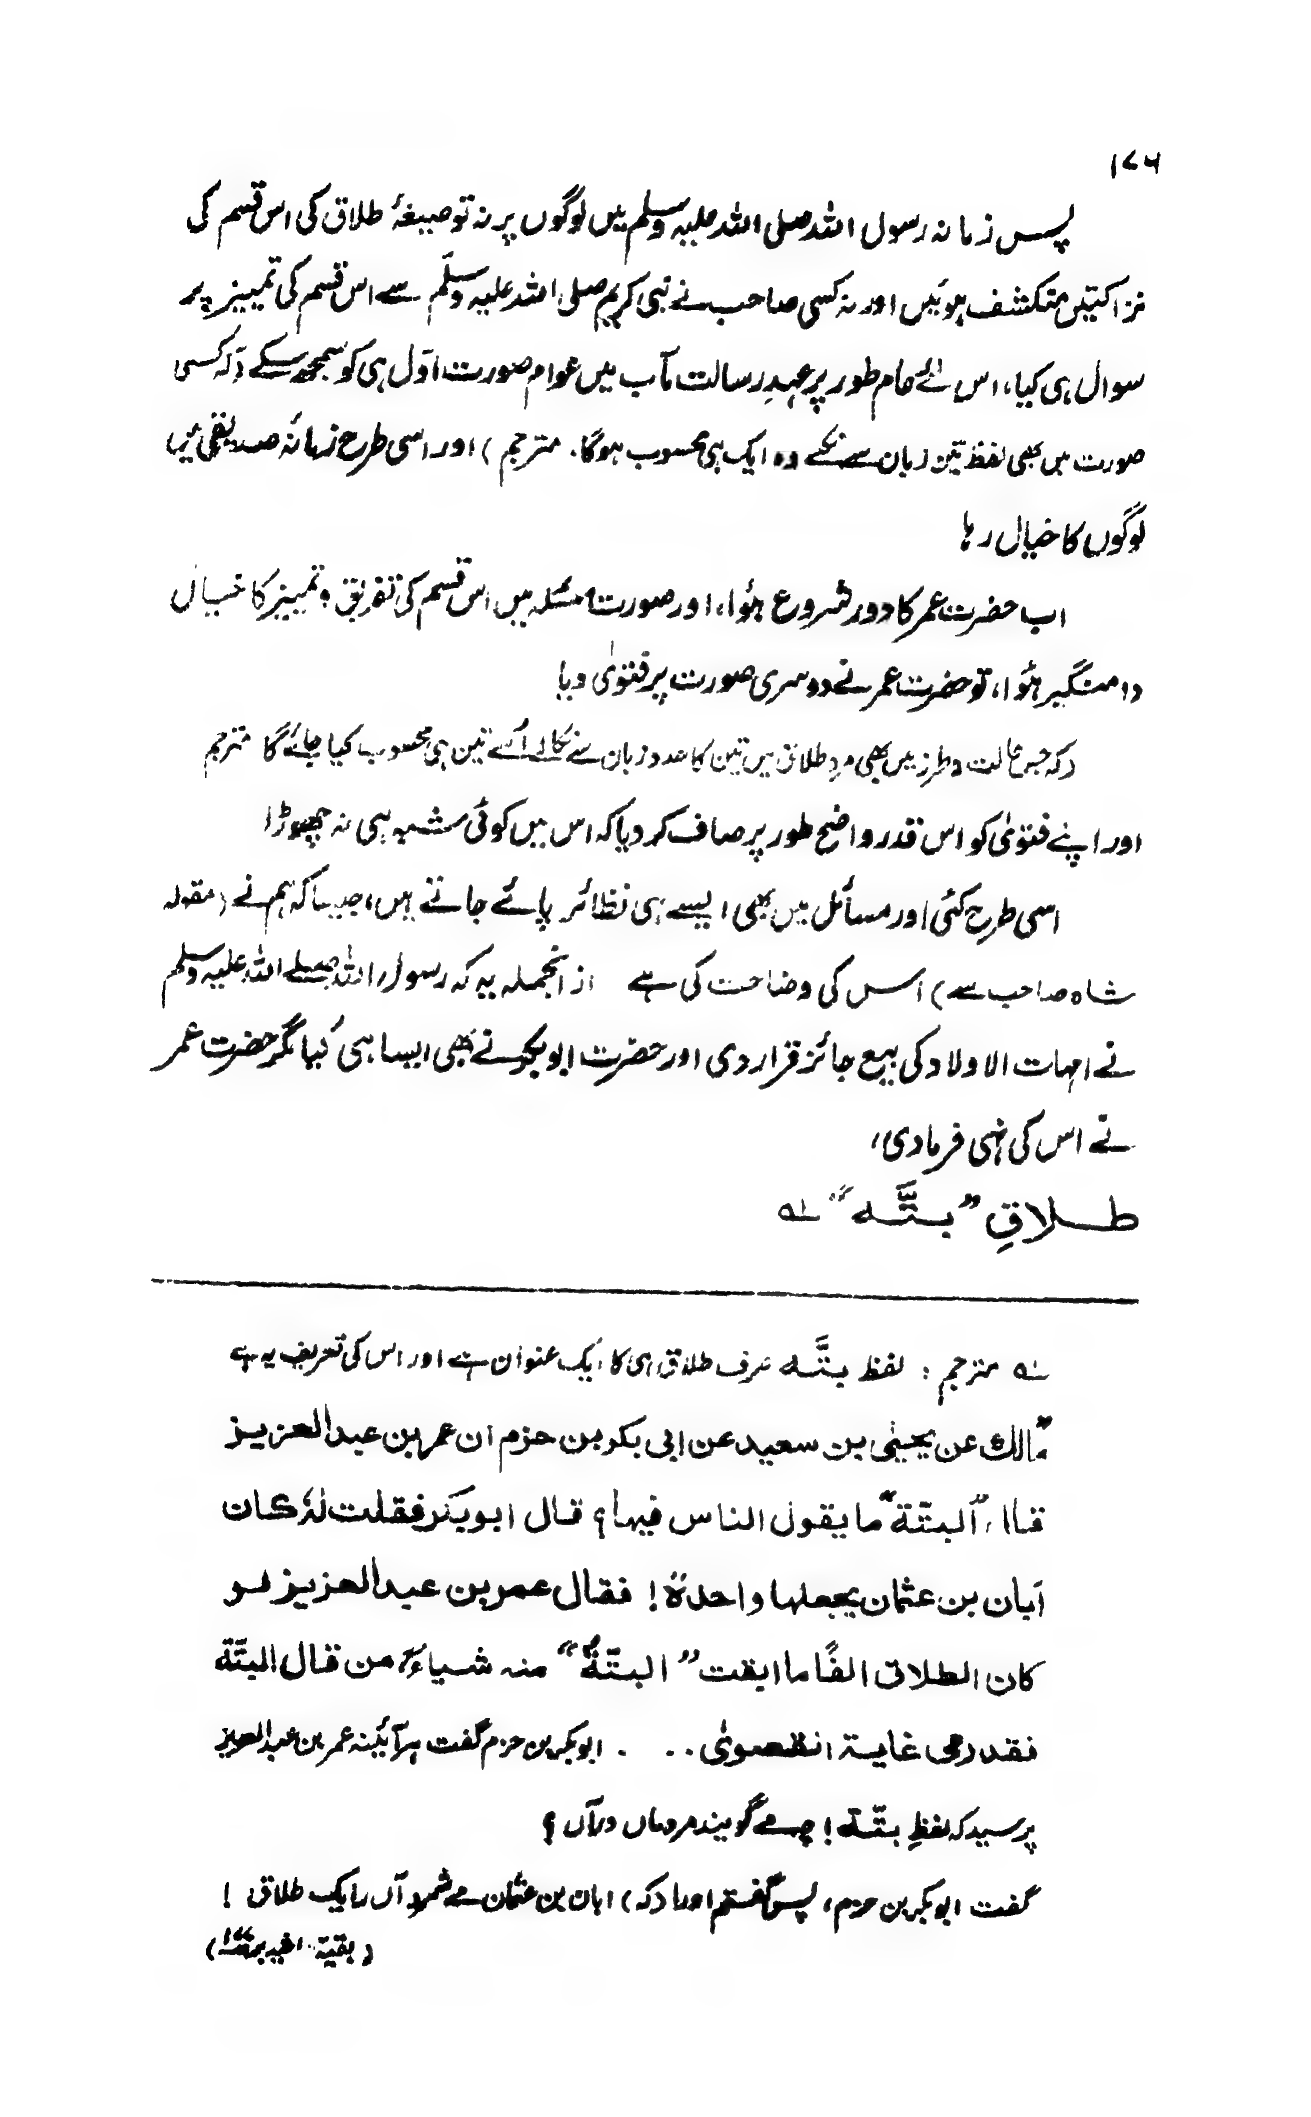 ۱۷۶
پس زمانہ رسول اللہ صلی اللہ علیہ وسلم میں لوگوں پر نہ تو صیغۂ طلاق کی اس قسم کی
نزاکتیں منکشف ہوئیں اور نہ کسی صاحب نے نبی کریم صلی اللہ علیہ وسلّم سے اس قسم کی تمییز پر
سوال ہی کیا، اس لئے عام طور پر عہدِ رسالت مآب میں عوام صورت اوّل ہی کو سمجھ سکے (کہ کسی
صورت میں بھی لفظ تین زبان سے نکلے وہ ایک ہی محسوب ہوگا۔ مترجم) اور اسی طرح زمانۂ صدیقی میں
لوگوں کا خیال رہا
اب حضرت عمر کا دور شروع ہؤا، اور صورت مسئلہ میں اس قسم کی تفریق و تمییز کا خیال
دامنگیر ہؤا، تو حضرت عمر نے دوسری صورت پر فتویٰ دیا
(کہ جس حالت و طرز میں بھی مرد طلاق میں تین کا عدد زبان سے نکالے اُسے تین ہی محسوب کیا جائے گا مترجم
اور اپنے فتویٰ کو اس قدر واضح طور پر صاف کر دیا کہ اس میں کوئی شبہ ہی نہ چھوڑا
اسی طرح کئی اور مسائل میں بھی ایسے ہی نظائر پائے جاتے ہیں، جیسا کہ ہم نے (مقولہ
شاہ صاحب سے) اس کی وضاحت کی ہے ازانجملہ یہ کہ رسول اللہ صلے اللہ علیہ وسلم
نے امہات الاولاد کی بیع جائز قرار دی اور حضرت ابوبکر نے بھی ایسا ہی کیا مگر حضرت عمر
نے اس کی نہی فرما دی،
طلاقِ "بتَّہ" لہ
لہ مترجم : لفظ بتَّہ صرف طلاق ہی کا ایک عنوان ہے اور اس کی تعریف یہ ہے
"مالك عن یحییٰ بن سعید عن ابی بکر بن حزم ان عمر بن عبد العزیز
قال، "البتّة" ما یقول الناس فیہا؟ قال ابو بکر فقلت لہٗ کان
اَبان بن عثمان یجعلہا واحدةً! فقال عمر بن عبد العزیز لو
کان الطلاق الفًا ما ابقت "البتّةُ" منہ شیاءً من قال البتّة
فقد رمی غایة القصویٰ . . . ابوبکر بن حزم گفت ہرآئینہ عمر بن عبد العزیز
پرسید کہ لفظِ بتّة! چہ مے گویند مردماں درآں ؟
گفت ابوبکر بن حزم، پس گفتم اورا (کہ) ابان بن عثمان مے شمرد آں را یک طلاق !
(بقیہ حاشیہ بر ص۱۷۷)